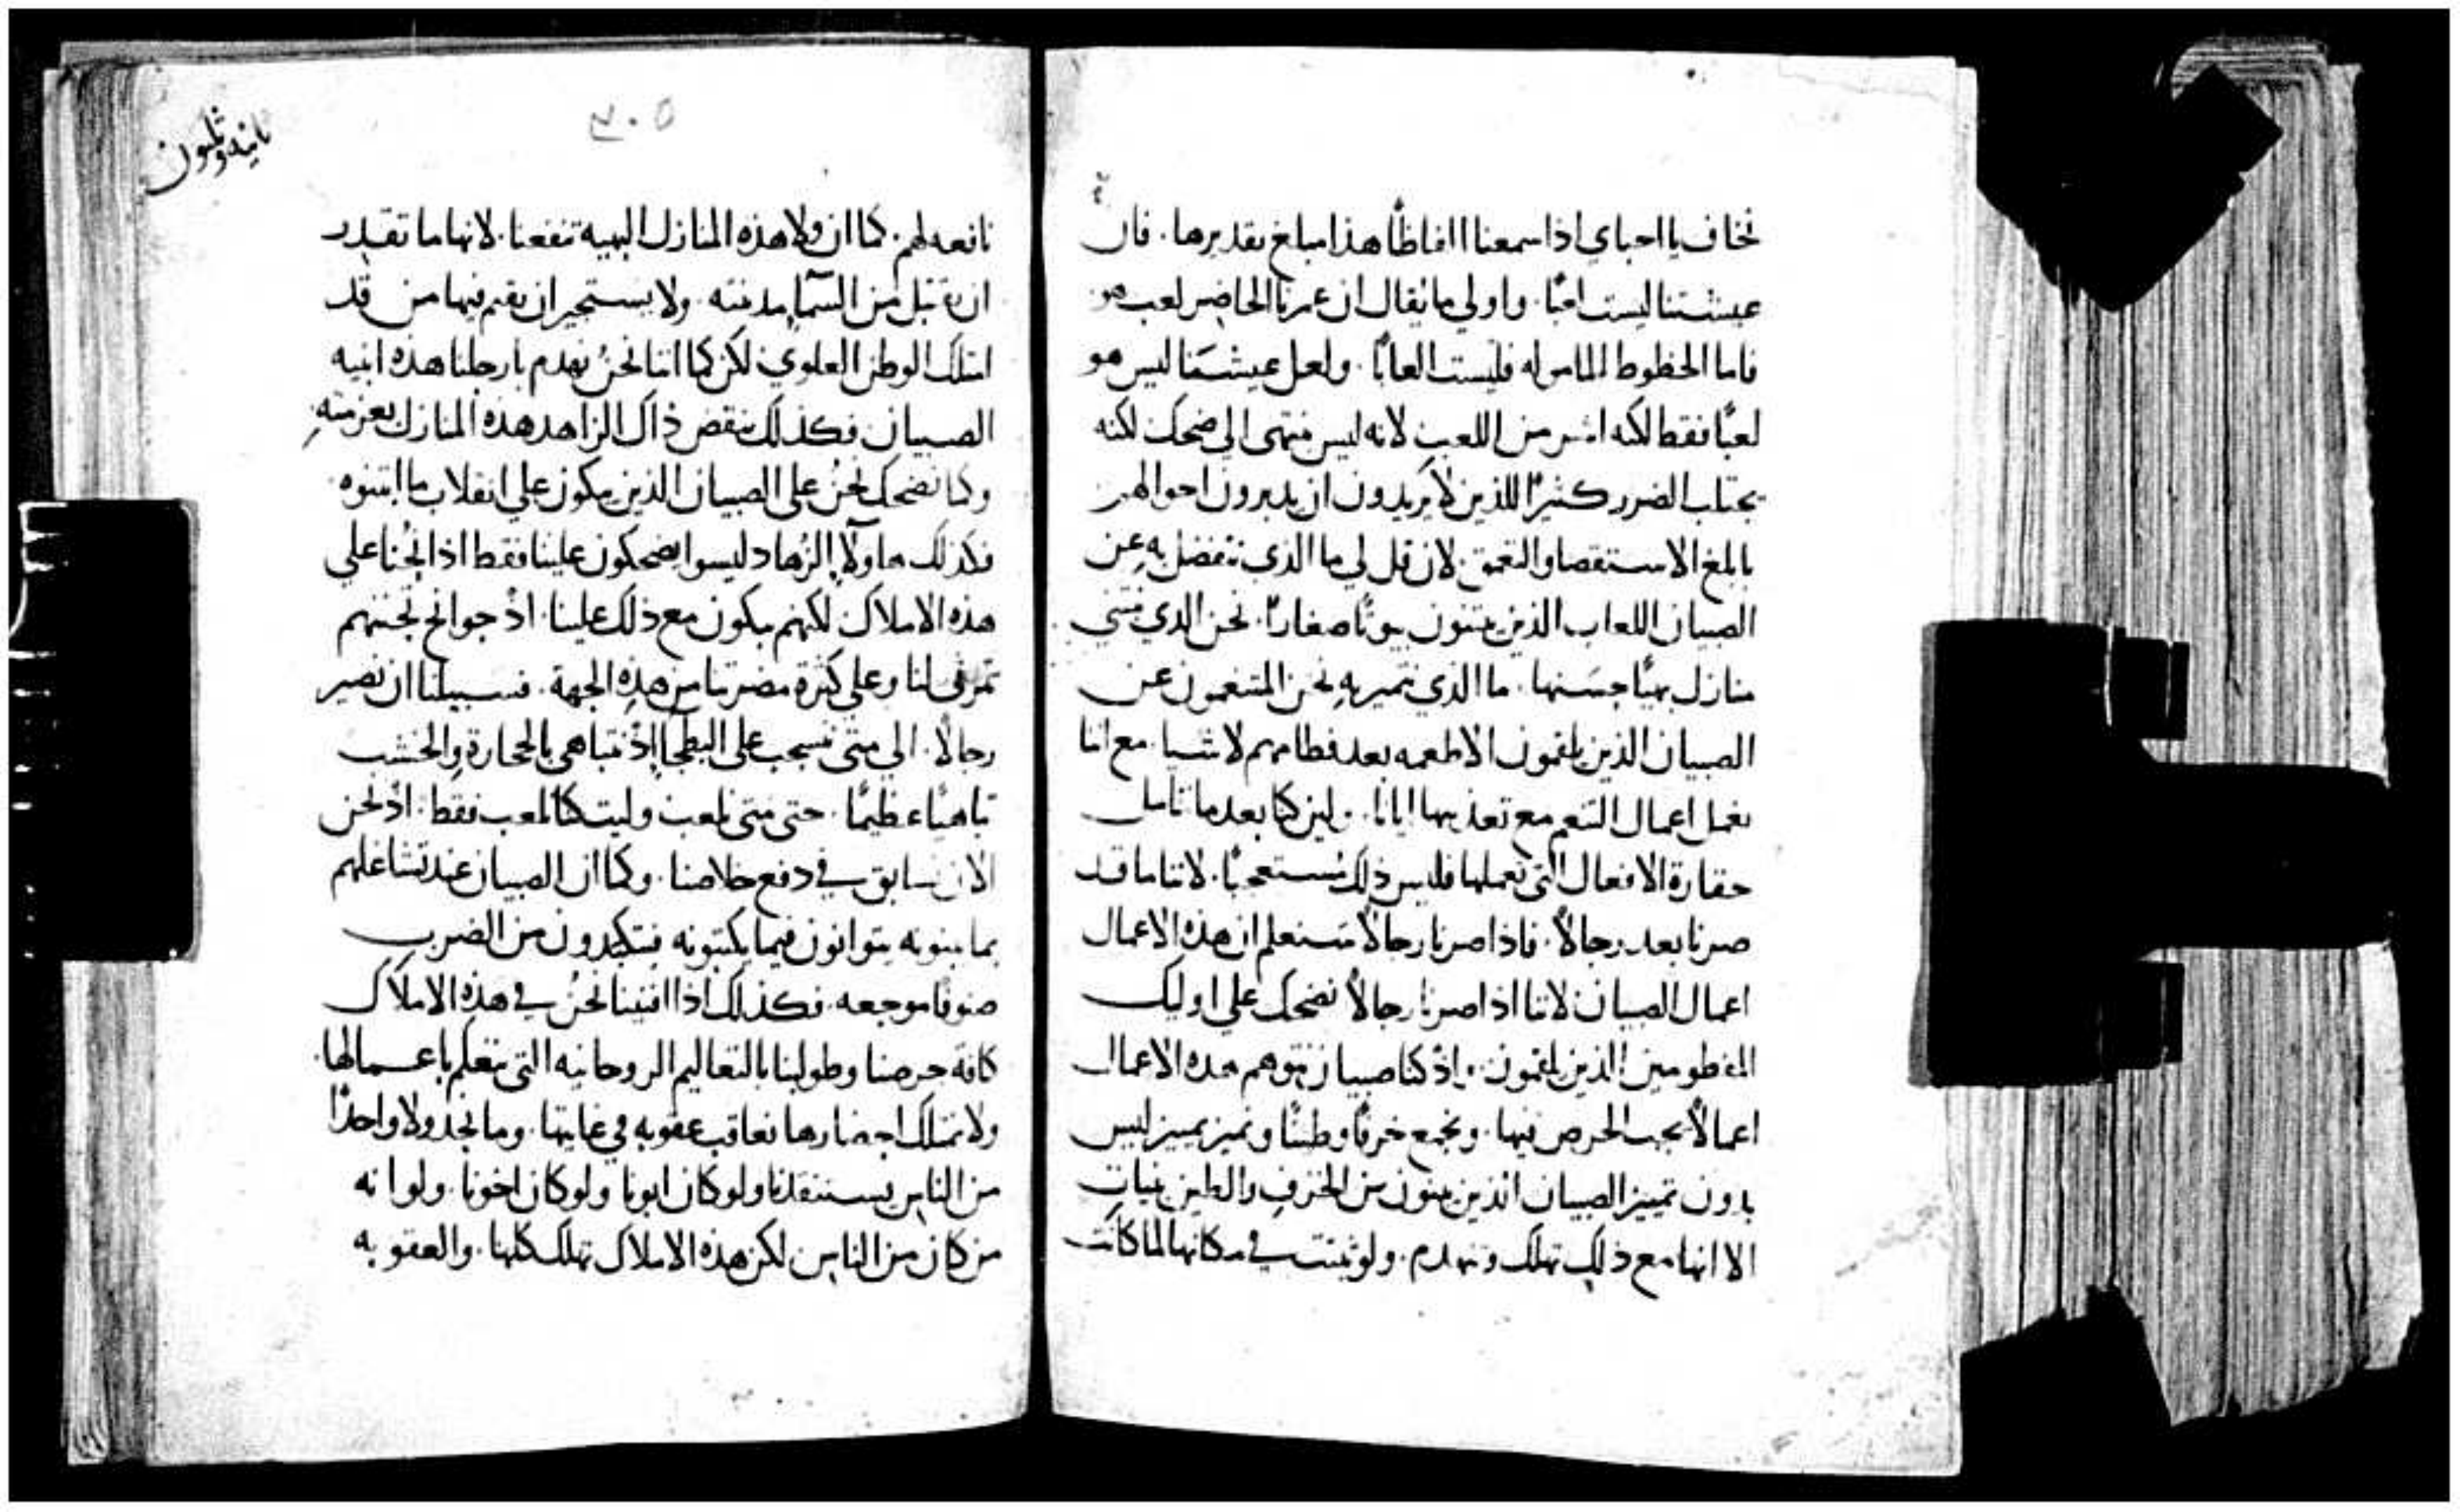 نخاف يا احباي اذا سمعنا الفاظًا هذا مبلغ تقديرها. فان
عيشتنا ليست لعبًا. واولي ما يقال ان عمرنا الحاضر لعب هو
فاما الحظوظ الماموله فليست العابًا. ولعل عيشتنا ليس هو
لعبًا فقط لكنه اشر من اللعب لانه ليس منتهى الى ضحك لكنه
يجتلب الضرر كثيرًا للذين لا يريدون ان يدبرون احوالهم
بابلغ الاستقصا والتعمق. لان قل لي ما الذي نتفضل به عن
الصبيان اللعاب الذين يبتنون بيوتًا صغارًا. نحن الذي نبتني
منازل بهيًا حسنها. ما الذي نتميز به نحن المتنعمون عن
الصبيان الذين يلقمون الاطعمه بعد فطامهم لا شيا. مع اننا
نعمل اعمال التنعم مع تعذيبها ايانا. ولين كنا بعد ما نامل
حقارة الافعال التي نعملها فليس ذلك مستعجبًا. لاننا ما قد
صرنا بعد رجالاً. فاذا صرنا رجالاً سنعلم ان هذه الاعمال
اعمال الصبيان لاننا اذا صرنا رجالاً نضحك على اوليك
المفطومين الذين يلقمون. واذ كنا صبيان نتوهم هذه الاعمال
اعمالاً يجب الحرص فيها. ونجمع خزفًا وطينًا ونميز تمييز ليس
بدون تمييز الصبيان الذين يبنون من الخزف والطين بنيات
الا انها مع ذلك تهلك وتنهدم. ولو ثبتت في مكانها لما كانت
٣٠٥
ثانيه وثلثون
نافعه لهم. كما ان ولا هذه المنازل البهيه تنفعنا. لانها ما تقدر
ان تقتبل من السمآ مدينته. ولا يستجيز ان يقيم فيها من قد
امتلك الوطن العلوي. لكن كما اننا نحن نهدم بارجلنا هذه ابنيه
الصبيان فكذلك ينقض ذاك الزاهد هذه المنازل بعزمته
وكما نضحك نحن على الصبيان الذين يبكون علي انقلاب ما ابتنوه
فكذلك هاولآ الزهاد ليسوا يضحكون علينا فقط اذا نحنا علي
هذه الاملاك لكنهم يبكون مع ذلك علينا. اذ جوانح تحننهم
تمرقى لنا وعلي كثرة مضرتنا من هذه الجهة. فسبيلنا ان نصير
رجالاً. الي متى نسحب على البطحآ اذ نتباهى بالحجارة والخشب
تباهيًا عظيمًا. حتى متى نلعب وليت كنا نلعب فقط. اذ نحن
الان نسابق في دفع خلاصنا. وكما ان الصبيان عند تشاغلهم
بما يبنونه يتوانون فيما يكتبونه فيتكبدون من الضرب
صنوفًا موجعه. فكذلك اذا افنينا نحن في هذه الاملاك
كافة حرصنا وطولبنا بالتعاليم الروحانيه التي نتعلم باعمالها.
ولا نمتلك احضارها نعاقب عقوبه في غايتها. وما نجد ولا واحدًا
من الناس يستنقذنا ولو كان ابونا ولو كان اخونا. ولو انه
من كان من الناس لكن هذه الاملاك تهلك كلها. والعقوبه